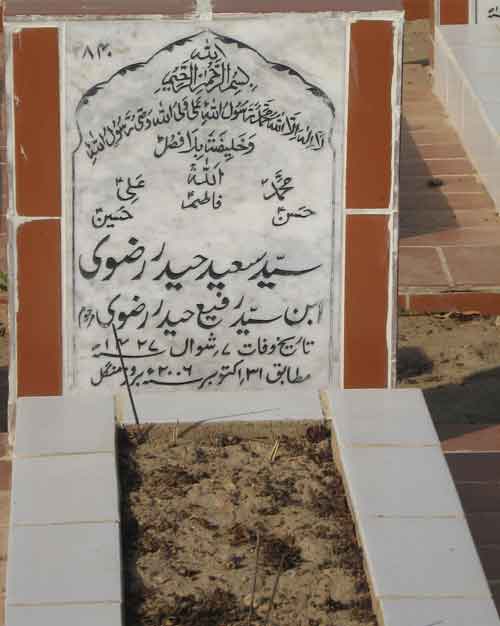 ۸۲۰
الله
بسم الله الرحمن الرحیم
لا اله الا الله محمد رسول الله علی ولی الله وصی رسول الله
و خلیفته بلا فصل
الله
محمد فاطمہ علی
حسن حسین
سیّد سعید حیدر رضوی
ابن سیّد رفیع حیدر رضوی مرحوم
تاریخ وفات ۷ شوال ۱۴۲۷ھ
مطابق ۳۱ اکتوبر ۲۰۰۶ء بروز منگل